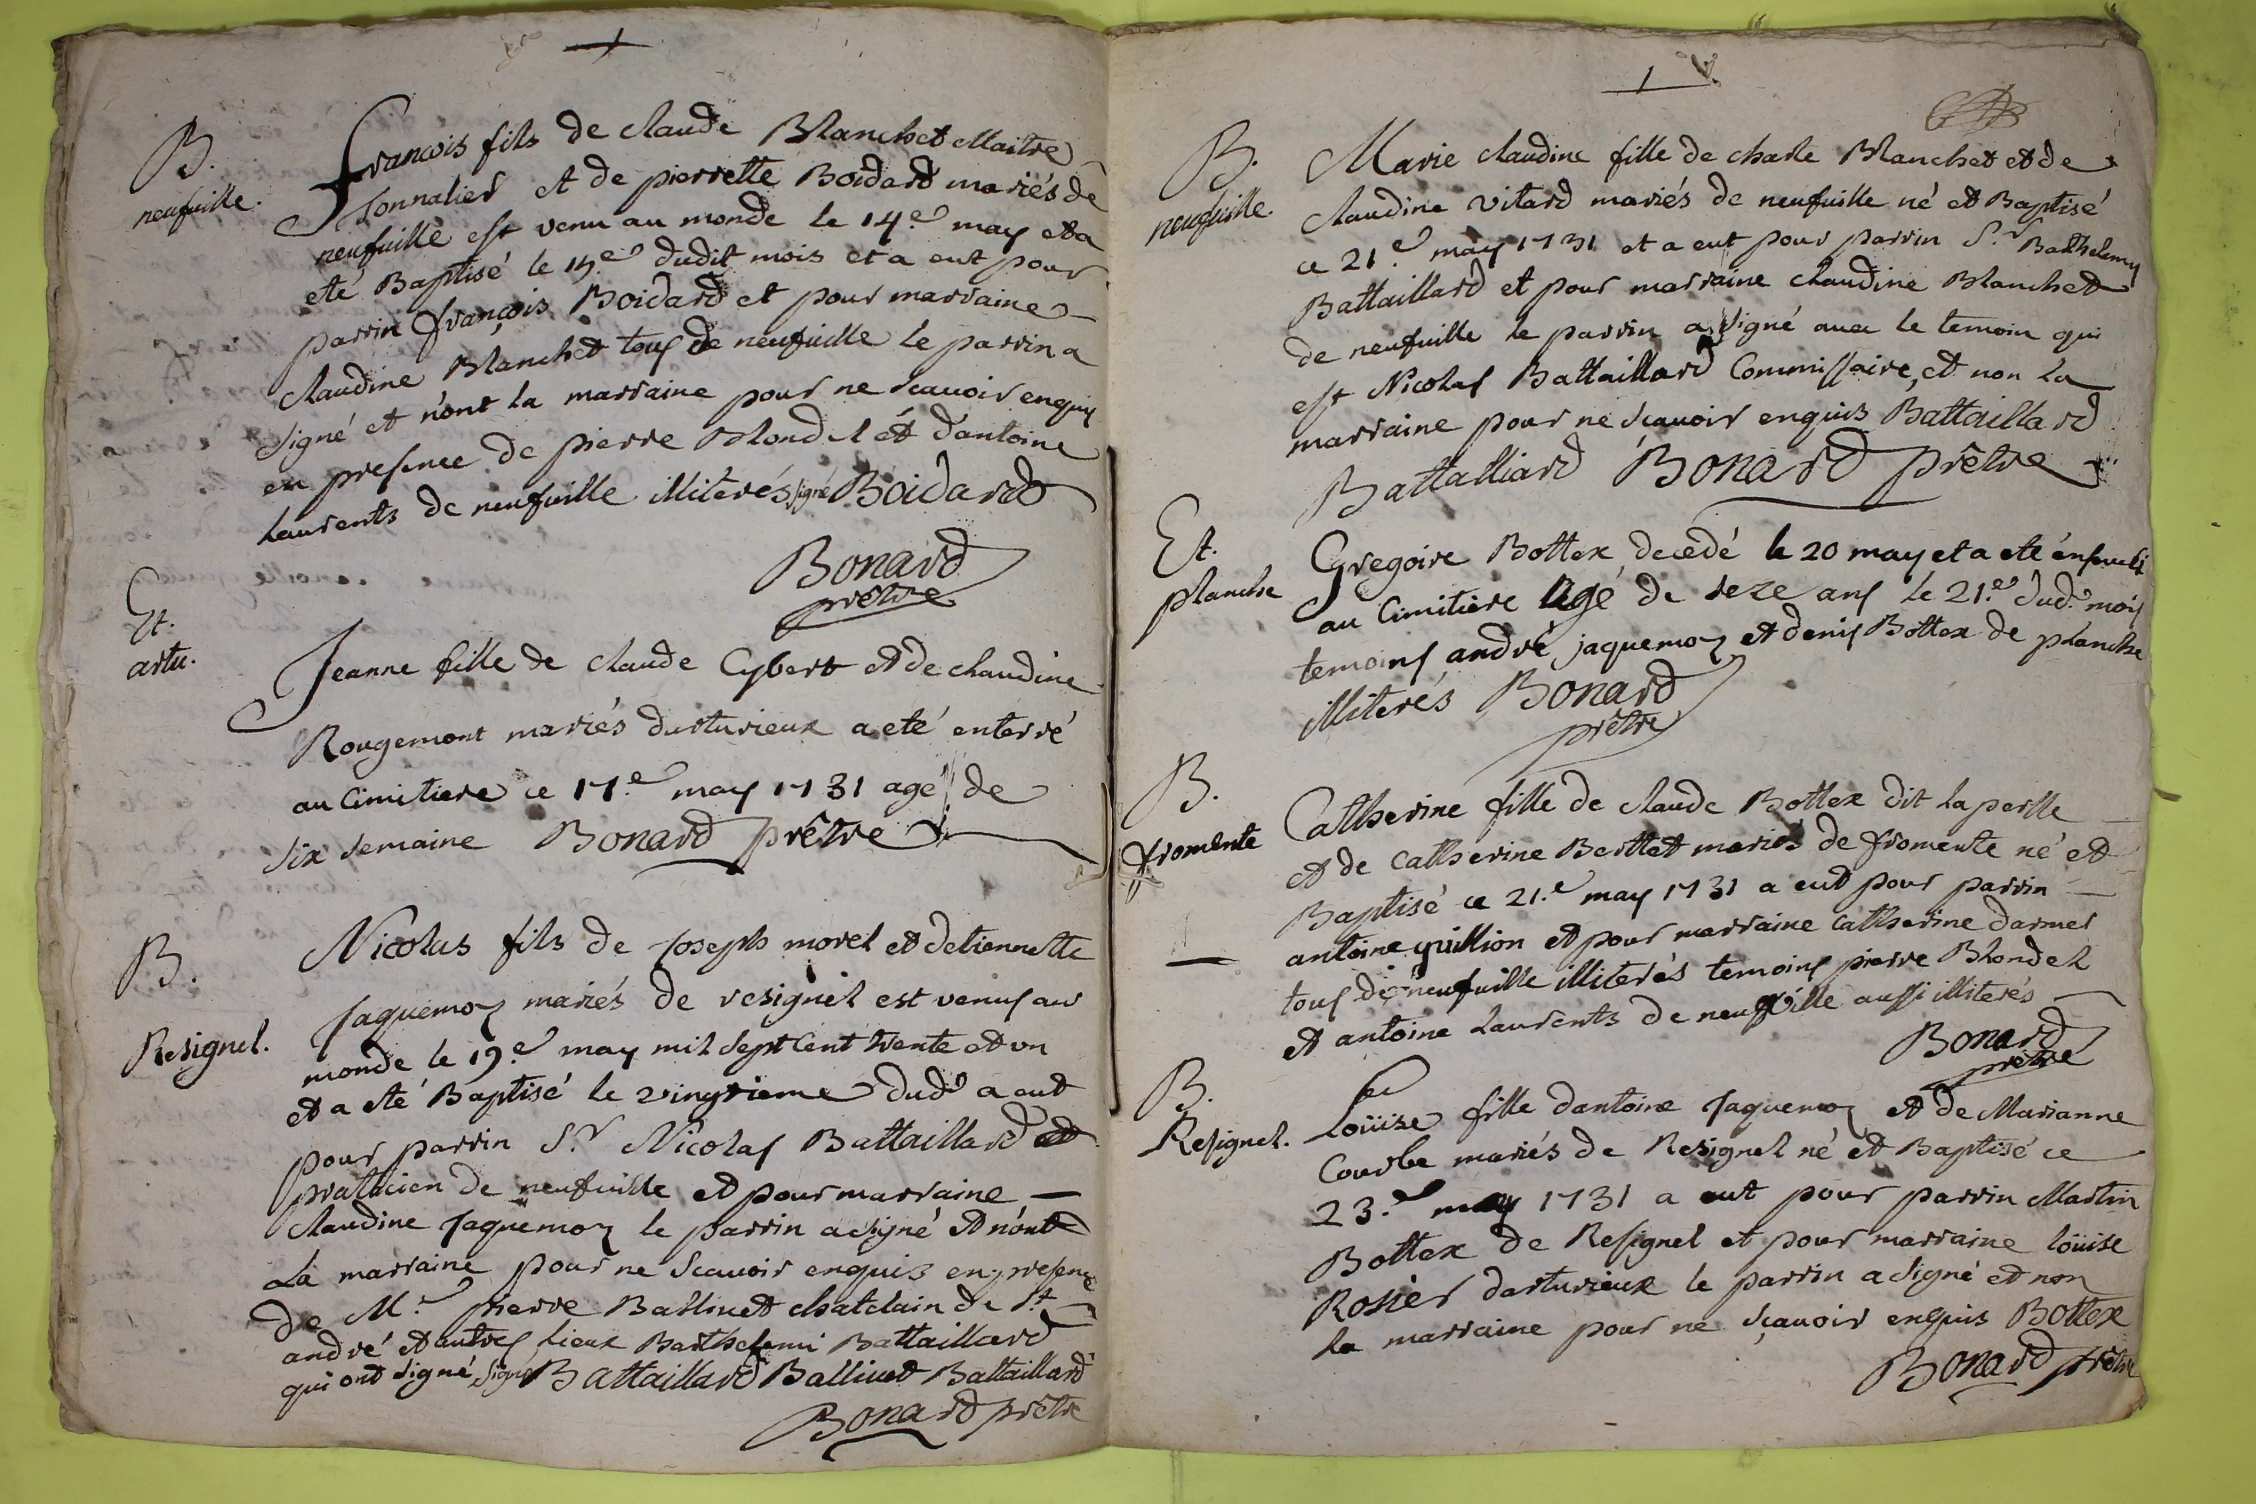 B.
neufuille.
François fils de claude Blanchet Maitre
Tonnalier et de pierrette Boidard mariés de
neufuille est venu au monde le 14.e may et a
eté Baptisé le 15.e dudit mois et a eut pour
parrin françois Boidard et pour marraine
claudine Blanchet tous de neufuille le parrin a
signé et n'ont la marraine pour ne scauoir enquis
en presence de pierre Blondel et d'antoine
Laurents de neufuille illiterés signé Boidard
Bonard
prêtre
Et.
artu.
Jeanne fille de claude Cybert et de claudine
Rougemont mariés darturieux a eté enterré
au Cimitiere ce 17.e may 1731 agé de
six semaine Bonard prêtre
B.
Resignel.
Nicolas fils de Joseph morel et detiennette
Jaquemoz mariés de resignel est venus au
monde le 19.e may mil sept Cent trente et un
et a eté Baptisé le vingtieme dud a eut
pour parrin S.r Nicolas Battaillard et
praticien de neufuille et pour marraine
Claudine Jaquemoz le parrin a signé et n'ont
La marraine pour ne Scauoir enquis en presence
de M.r pierre Balliuet chatelain de S.t
andré et autres lieux Barthelemi Battaillard
qui ont signé signé Battaillard Balliuet Battaillard
Bonard prêtre
1
B.
neufuille.
Marie claudine fille de charle Blanchet et de
claudine vitard mariés de neufuille né et Baptisé
ce 21.e may 1731 et a eut pour parrin S.r Barthelemy
Battaillard et pour marraine claudine Blanchet
de neufuille le parrin a signé auec le temoin qui
est Nicolas Battaillard Commissaire, et non La
marraine pour ne scauoir enquis Battaillard
Battalliard Bonard prêtre
Et.
planche
Gregoire Bottex decedé le 20 may et a eté enseueli
au Cimitiere Agé de seze ans le 21.e dud. mois
temoins andré jaquemoz et denis Bottex de planche
illiterés Bonard
prêtre
B.
fromente
Catherine fille de claude Bottex dit la perlle
et de catherine Berttet mariés de fromente né et
Baptisé ce 21.e may 1731 a eut pour parrin
antoine guillion et pour marraine catherine darmet
tous de neufuille illiterés temoins pierre Blondel
et antoine Laurents de neufville aussi illiterés
Bonard
prêtre
B.
Resignel.
Loüise fille dantoine Jaquemoz et de Marianne
Courbe mariés de Resignel né et Baptisé ce
23.e may 1731 a eut pour parrin Martin
Bottex de Resignel et pour marraine loüise
Rosier darturieux le parrin a signé et non
la marraine pour ne sçauoir enquis Bottex
Bonard prêtre